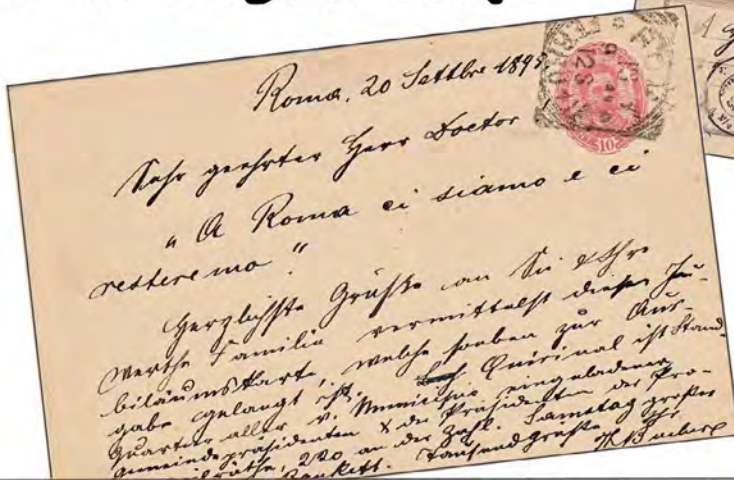 Roma, 20 Settbre 189
Sehr geehrter Herr Doctor
"A Roma ci siamo e ci
resteremo"
Herzlichste Grüsse an Sie & Ihre
werthe Familie vermittelst dieser Ju-
biläumskarte, welche soeben zur Aus-
gabe gelangt ist. Quirinal ist Stand-
quartier aller v. Municipio eingeladener
Gemeindepräsidenten & der Präsidenten der Pro-
räthe, 220 an der Zahl. Samstag grosser
Bankett. Tausend Grüsse Ihr
10